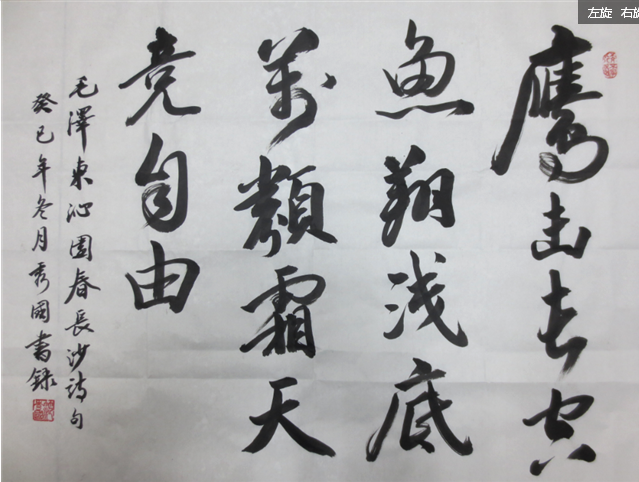 左旋 右旋
鷹击长空
魚翔浅底
萬類霜天
竞自由
毛澤東沁園春長沙诗句
癸巳年冬月秀國書録